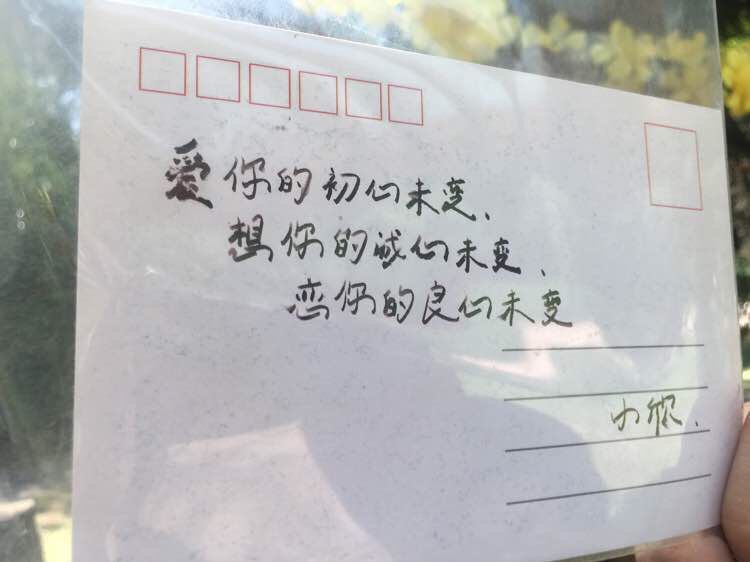 爱你的初心未变、
想你的诚心未变、
恋你的良心未变
小